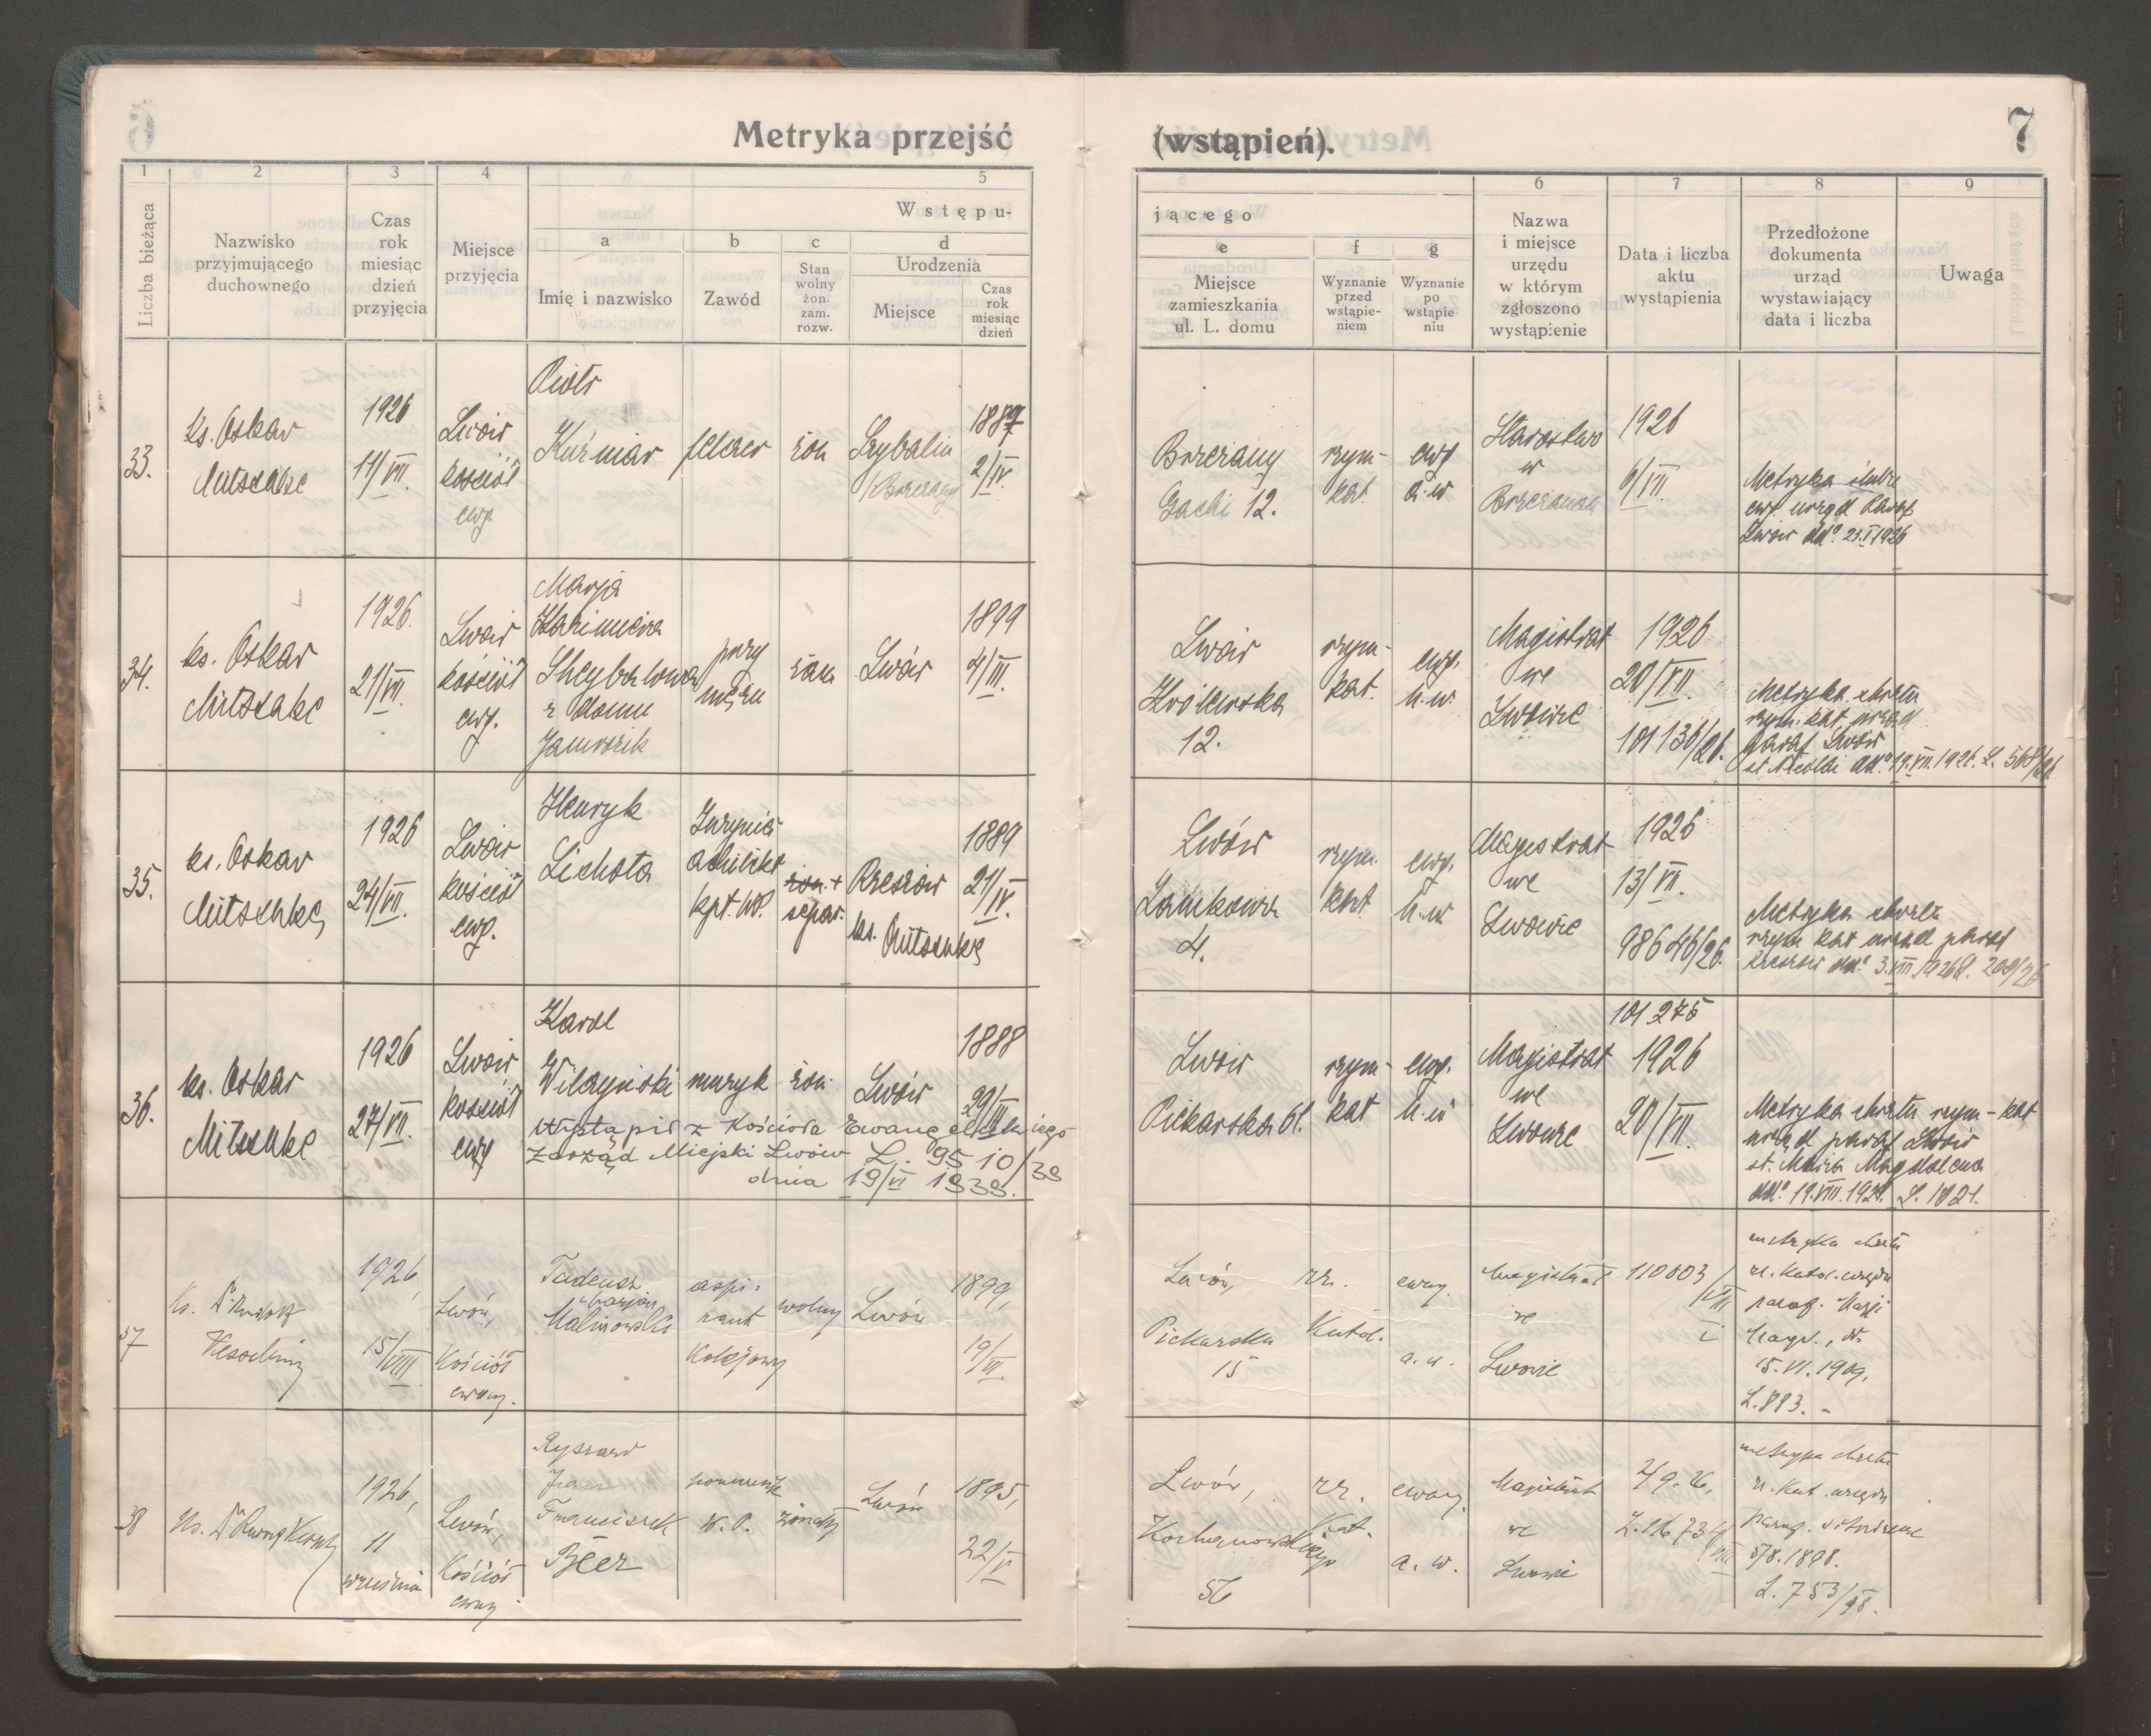 Metryka przejść (wstąpień).
7
1 2 3 4 5
Liczba bieżąca
Nazwisko
przyjmującego
duchownego
Czas
rok
miesiąc
dzień
przyjęcia
Miejsce
przyjęcia
Wstępu-
a b c d
Imię i nazwisko
Zawód
Stan
wolny
żon.
zam.
rozw.
Urodzenia
Miejsce
Czas
rok
miesiąc
dzień
jącego
e f g
Miejsce
zamieszkania
ul. L. domu
Wyznanie
przed
wstąpie-
niem
Wyznanie
po
wstąpie
niu
6 7 8 9
Nazwa
i miejsce
urzędu
w którym
zgłoszono
wystąpienie
Data i liczba
aktu
wystąpienia
Przedłożone
dokumenta
urząd
wystawiający
data i liczba
Uwaga
33.
ks. Oskar
Mitschke
1926
14/VII.
Lwów
kościół
ewg.
Piotr
Kuźniar
felczer
żon
Szybalin
Brzeżany
1887
2/IV.
Brzeżany
Gachi 12.
rzym-
kat.
ewg
a. w
Starostwo
w
Brzeżanach
1926
6/VII.
Metryka ślubu
ewg. urząd Paraf
Lwów
34.
ks. Oskar
Mitschke
1926.
21/VII.
Lwów
kościół
ewg.
Marja
Kazimiera
z domu
Jaworik
przy
mężu
zam
Lwów
1899
4/III.
Lwów
12.
rzym-
kat.
ewg.
h. w.
Magistrat
we
Lwowie
1926
20/VII.
101136/26.
Metryka chrztu
rzym. kat. urząd
paraf Lwów
35.
ks. Oskar
Mitschke
1926
24/VII.
Lwów
kościół
ewg.
Henryk
Lichota
Inżynier
architekt
kpt. WP.
żon. +
separ.
Rzeszów
ks. Mitschke
1889
21/IV.
Lwów
4.
rzym.
kat
ewg.
h. w
Magistrat
we
Lwowie
1926
13/VII.
98646/26.
Metryka chrztu
rzym kat urząd paraf
36.
ks. Oskar
Mitschke
1926
27/VII.
Lwów
kościół
ewg
Karol
Wilczyński
muzyk
żon.
Lwów
1888
29/III
Wystąpił z Kościoła Ewangelickiego
Zarząd Miejski Lwów L. 9510/39
dnia 19/VI 1939.
Lwów
Piekarska 61.
rzym-
kat
ewg.
h. w
Magistrat
we
Lwowie
101275
1926
20/VII.
Metryka chrztu rzym-kat
urząd paraf Lwów
st. Maria Magdalena
37
Ks. Dr. Rudolf
Kesselring
1926,
15/VIII.
Lwów,
Kościół
ewang.
Tadeusz
Marjan
Malinowski
aspi-
rant
kolejowy
wolny
Lwów
1899,
19/VII.
Lwów,
Piekarska
15
rz.
Katol.
ewang.
a. w.
Magistrat
we
Lwowie
110003/VIII
metryka chrztu
rz. katol. urzędu
paraf. Marji
Magd.,
15.VI.1909,
L. 883. -
38
1926,
11
września
Lwów,
Kościół
ewang.
Ryszard
Jan
Franciszek
Beer
porucznik
W. P.
żonaty
Lwów
1895,
22/V
Lwów,
Kochanowskiego
56
rz.
kat.
ewang.
a. w.
Magistrat
we
Lwowie
metryka chrztu
rz. kat. urzędu
5/8. 1898.
L. 753/98.